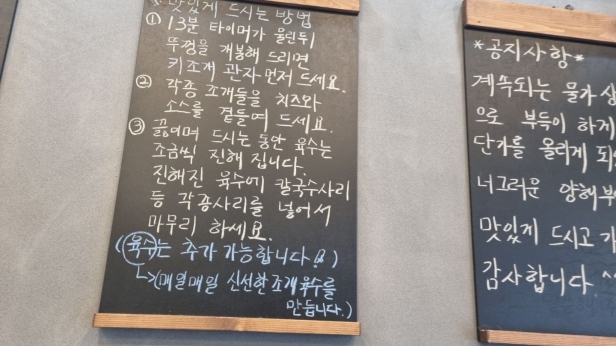 맛있게 드시는 방법
① 13분 타이머가 울린뒤
뚜껑을 개봉해 드리면
키조개 관자 먼저 드세요.
② 각종 조개들을 치즈와
소스를 곁들여 드세요.
③ 끓이며 드시는 동안 육수는
조금씩 진해 집니다.
진해진 육수에 칼국수사리
등 각종사리를 넣어서
마무리 하세요.
(육수는 추가 가능합니다!)
↳(매일매일 신선한 조개육수를
만듭니다.)
*공지사항*
계속되는 물가
으로 부득이 하게
단가를 올리게 되
너그러운 양해
맛있게 드시고
감사합니다 ^^